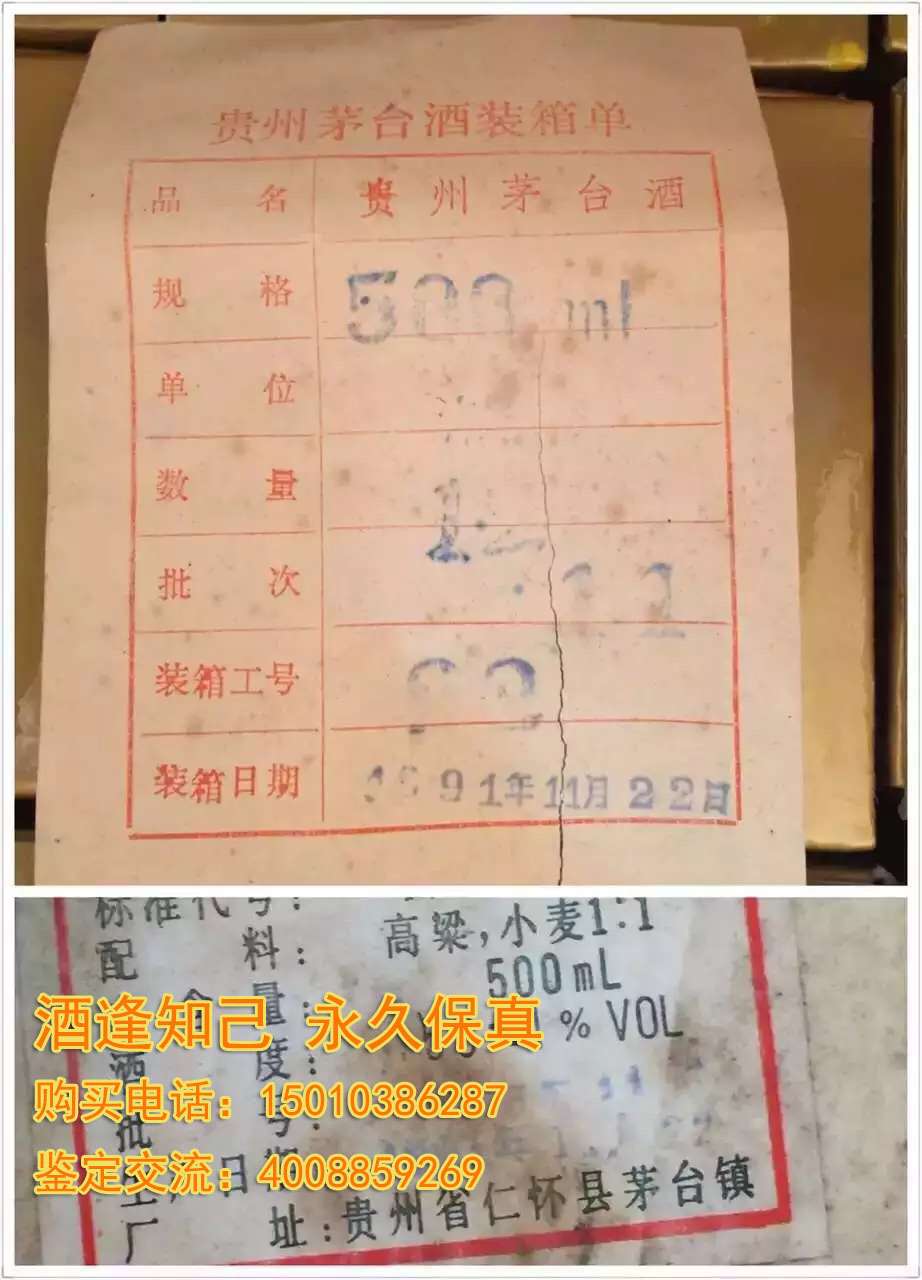 贵州茅台酒装箱单
品名 贵州茅台酒
规格 500 ml
单位
数量
批次 11
装箱工号
装箱日期 1991年11月22日
标准代号:
配料: 高粱,小麦1:1
含量: 500mL
酒度: % VOL
批号:
日期
厂址:贵州省仁怀县茅台镇
酒逢知己 永久保真
购买电话:15010386287
鉴定交流:4008859269